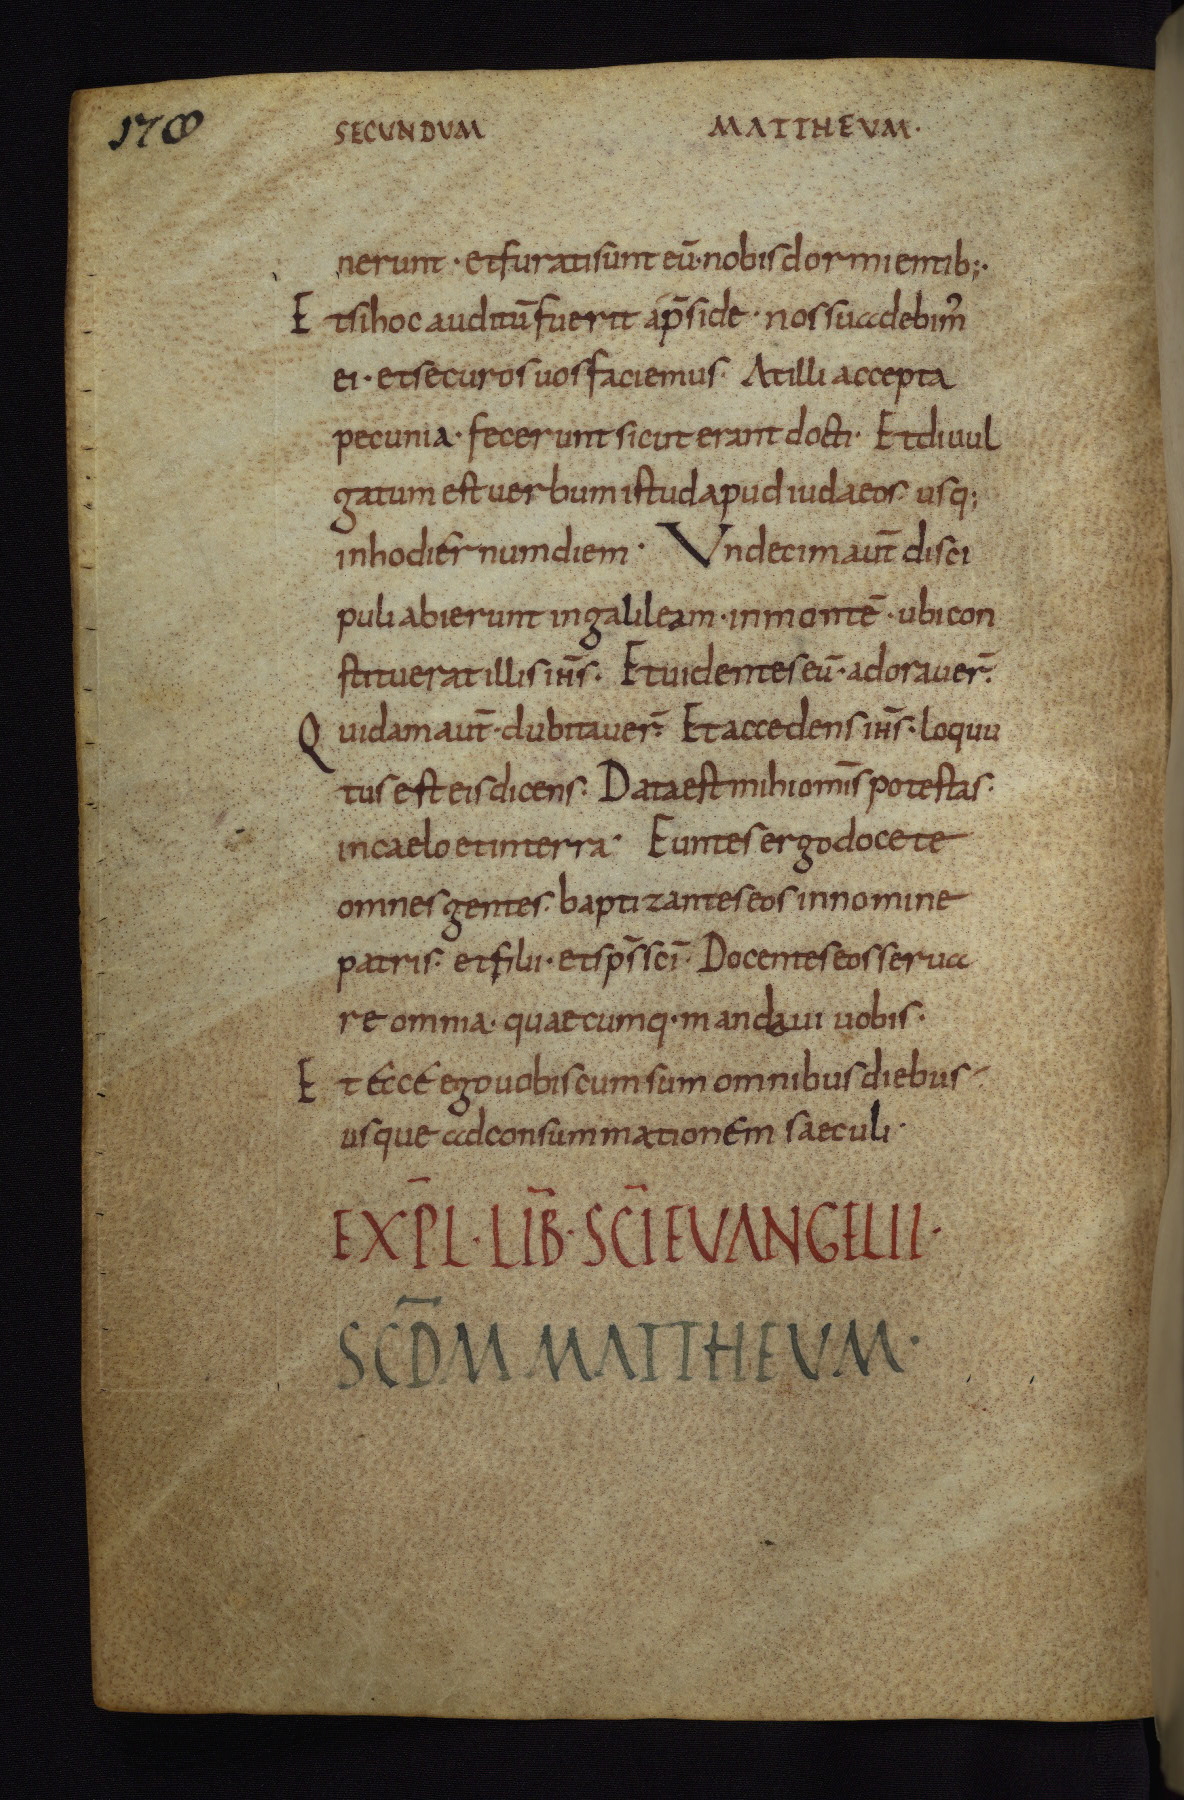 178 SECUNDUM MATTHEVM·
nerunt · et furati sunt eū· nobis dormientib;·
Et si hoc auditū fuerit a p̄side · nos suadebim᷒
ei · et securos uos faciemus· At illi accepta
pecunia· fecerunt sicut erant docti· Et diuul
gatum est uerbum istud apud iudaeos· usq;
in hodiernum diem · Vndecim aut̄ disci
puli abierunt in galileam · in montē · ubi con
stituerat illis ih̄s · Et uidentes eū · adorauer̄·
Quidam aut̄ · dubitauer̄· Et accedens ih̄s · loquu
tus est eis dicens· Data est mihi omīs potestas·
in caelo et in terra· Euntes ergo docete
omnes gentes· baptizantes eos in nomine
patris· et filii · et sp̄s sc̄i· Docentes eos serua
re omnia· quaecumq· mandaui uobis·
Et ecce ego uobiscum sum omnibus diebus
usque ad consummationem saeculi·
EXP̄L· LIB̄· SC̄I EVANGELII·
SC̄DM MATTHEVM·